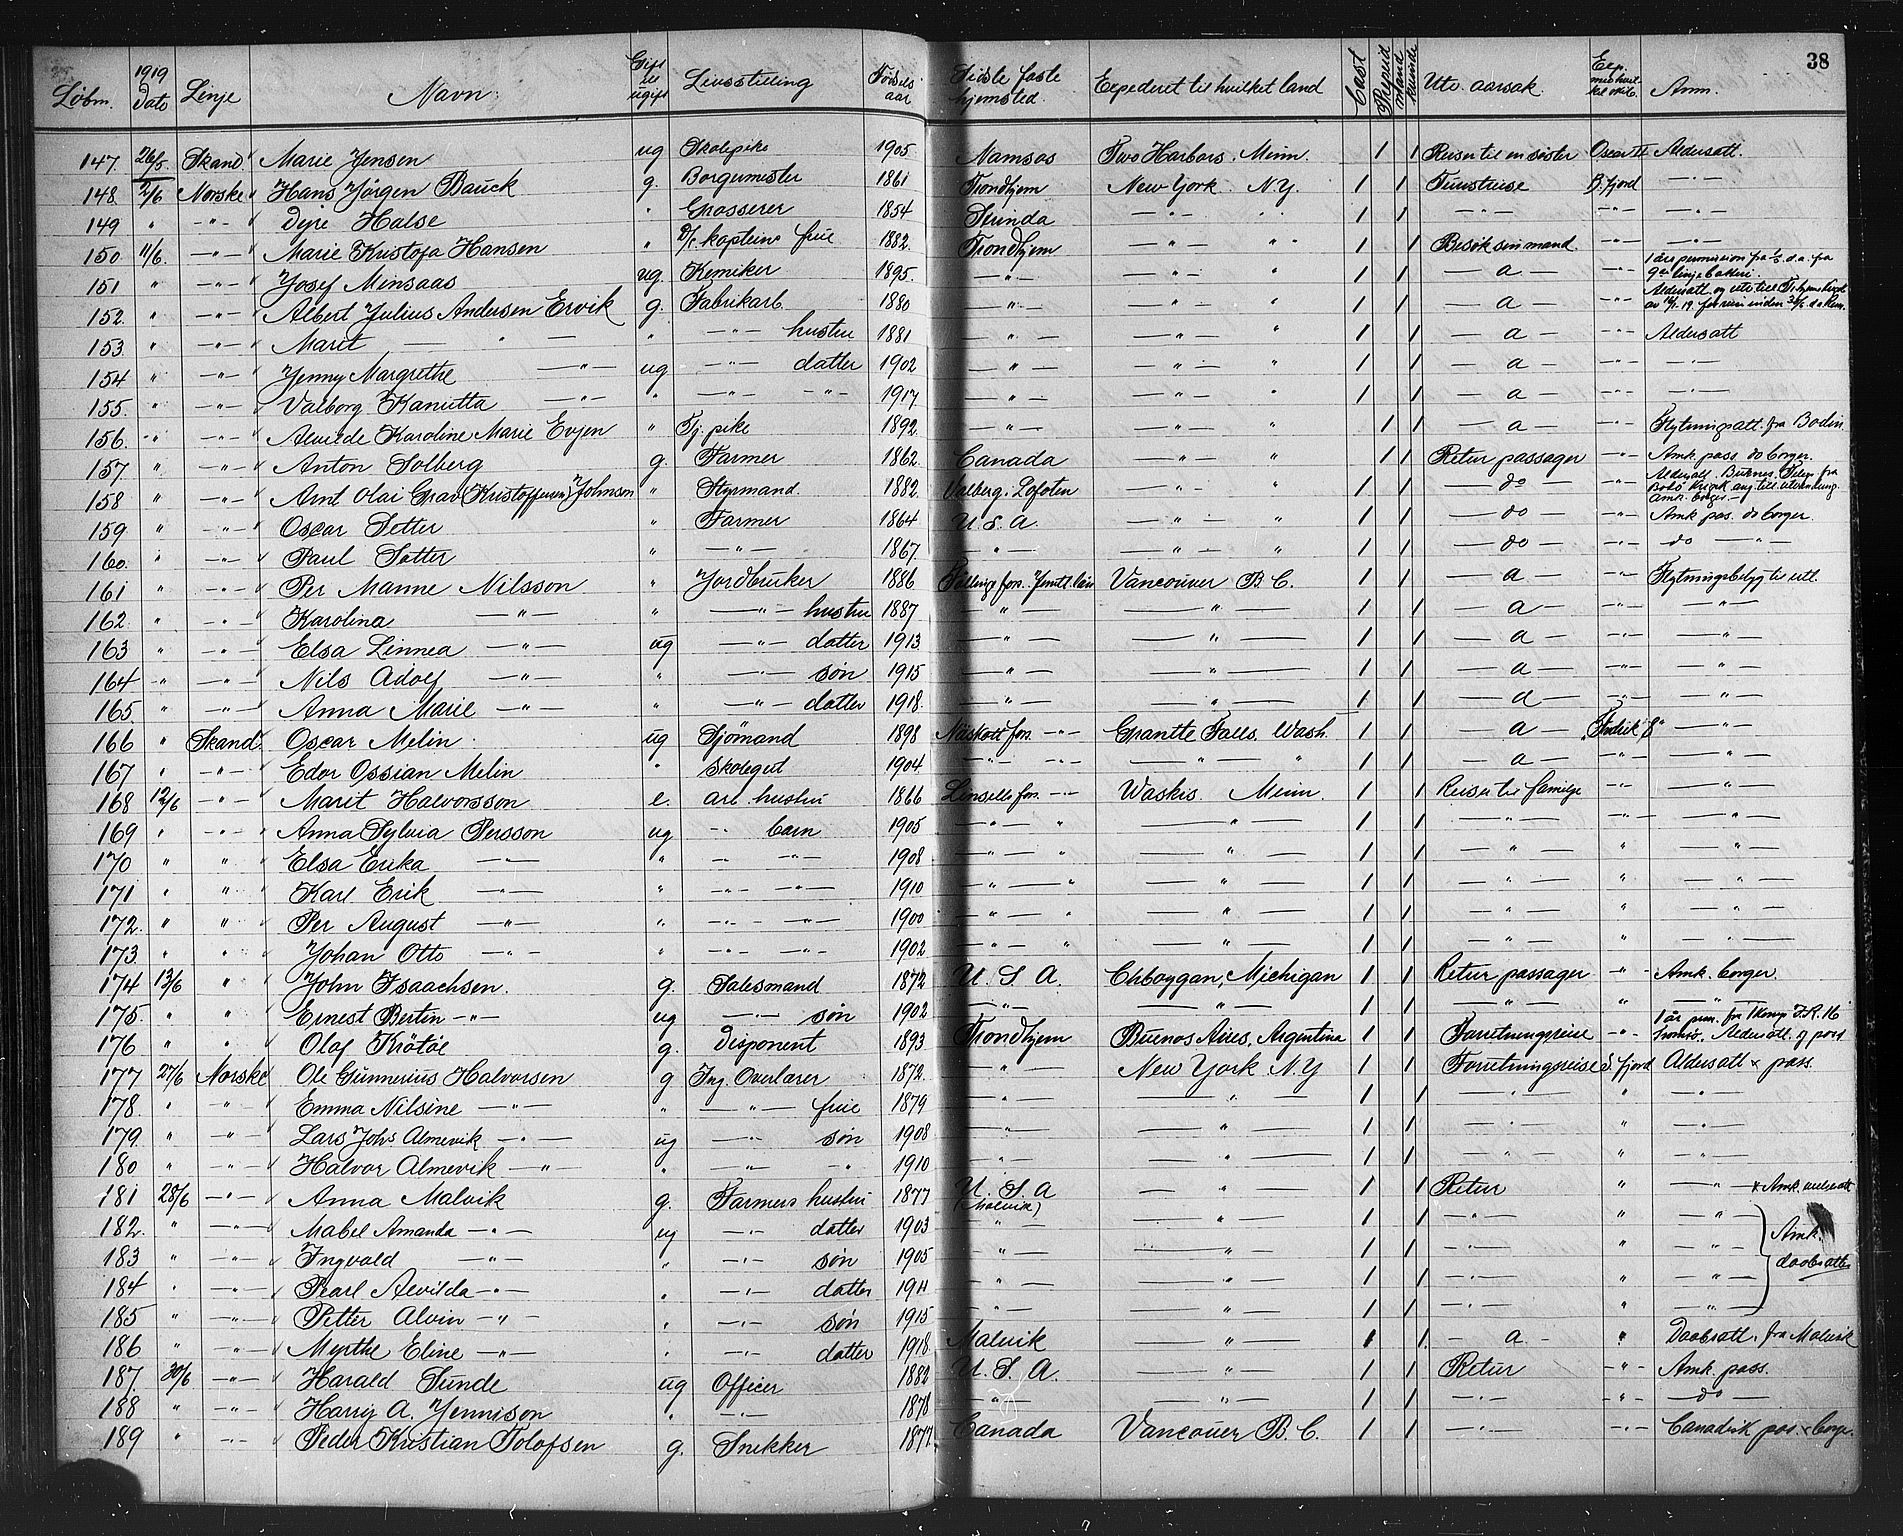 38
Løbnr. 1919 Dato Linje Navn. Gift el. ugift Livsstilling Fødselsaar Sidste faste hjemsted. Expederet til hvilket land Cast Prepaid Mand Kvinde Utv. aarsak. Exp. med hvilket skib. Anm.
147. 26/5 Skand Marie Jensen ug Skolepike 1905 Namsos Two Harbors. Minn. 1 1 Reiser til en søster Oscar II Aldersatt.
148. 2/6 Norske Hans Jörgen Bauck g. Borgermester 1861 Trondhjem New York N.Y. 1 1 Turistreise B.fjord —"—
149 " —"— Dyre Halse " Grosserer 1854 Strinda —"— " 1 1 —"— —"— —"—
150 11/6. —"— Marie Kristofa Hansen " D/s kapteins frue 1882. Trondhjem —"— " 1 1 Besøk sin mand —"— —"—
151 " —"— Josef Minsaas ug. Kemiker 1895. —"— —"— " 1 1 — a — —"— 1 års permission fra
152. " —"— Albert Julius Andersen Ervik g. Fabrikarb. 1880 —"— —"— " 1 1 — a — —"— Aldersatt. og
153 " —"— Marit — " — " —"— hustru 1881 —"— —"— " 1 1 — a — —"— Aldersatt
154 " —"— Jenny Margrethe —"— ug —"— datter 1902 —"— —"— " 1 1 — a — —"— —"—
155. " —"— Valborg Kanutta —"— " —"— —"— 1917 —"— —"— " 1 1 — a — —"— —"—
156. —"— —"— Alvilde Karoline Marie Evjen " Tj. pike 1892. —"— —"— " 1 1 — a — —"— Flytningsatt. fra Bodin
157. " —"— Anton Solberg g. Farmer 1862. Canada —"— " 1 1 Retur passager —"— Amk. pass. do borger.
158 " —"— Arnt Olai Grav (Kristoffersen) Johnson " Styrmand 1882. Valberg. Lofoten —"— " 1 1 — do — —"— Amk. borger —
159. " —"— Oscar Setter " Farmer 1864 U.S.A. —"— " 1 1 — do — —"— Amk pas. do borger.
160. " —"— Paul Satter " —"— 1867. —"— —"— " 1 1 — do — —"— do —"—
161 " —"— Per Manne Nilsson " Jordbruker 1886 Vancouver B.C. 1 1 — a — —"—
162. " —"— Karolina —"— " —"— hustru 1887 —"— —"— 1 1 — a — —"— —"—
163 " —"— Elsa Linnea —"— ug —"— datter 1913 —"— —"— 1 1 — a — —"— —"—
164 —"— —"— Nils Adolf —"— " —"— søn 1915 —"— —"— 1 1 — a — —"— —"—
165. " —"— Anna Marie —"— " —"— datter 1918. —"— —"— 1 1 — a — —"— —"—
166 " Skand Oscar Melin ug Sjömand 1898 Näskott for. —"— Granite Falls. Wash. 1 1 — a — Fredrik 8" —"—
167. " —"— Edor Ossian Melin " skolegut 1904. —"— —"— —"— " 1 1 — a — —"— —"—
168 12/6 —"— Marit Halvorsson e. arb hustru 1866 Linsell for. —"— Waskis. Minn. 1 1 Reiser til familje —"— —"—
169 " —"— Anna Sylvia Persson ug —"— barn 1905 —"— " —"— 1 1 —"— —"— —"—
170 " " Elsa Erika —"— " —"— —"— 1908 —"— —"— 1 1 —"— " —"—
171 " " Karl Erik —"— " —"— —"— 1910 —"— " —"— 1 1 —"— " —"—
172. " " Per August —"— " —"— —"— 1900 —"— " —"— 1 1 —"— " —"—
173 " " Johan Otto —"— " —"— —"— 1902 —"— " —"— 1 1 —"— " —"—
174 13/6 " John Isaachsen. g. Salesmand 1872 U.S.A. Chboygan, Michigan 1 1 Retur passager —"— Amk. borger.
175. " " Ernest Bertin —"— ug —"— søn 1902 —"— —"— 1 1 —"— " —"—
176 " " Olaf Krötöe g. Disponent 1893 Trondhjem Buenos Aires, Argentina 1 1 Forretningsreise —"— Aldersatt. og pass
177 27/6 Norske Ole Gunnerius Halvorsen g Ing. Overlærer 1872. —"— New York N.Y 1 1 Forretningsreise S. fjord Aldersatt + pass.
178. " " Emma Nilsine —"— " —"— frue 1879 —"— —"— 1 1 —"— " —"—
179. " —"— Lars Johs Almevik —"— ug —"— søn 1908 —"— —"— 1 1 —"— " —"—
180 " —"— Halvor Almevik —"— " —"— —"— 1910 —"— —"— 1 1 —"— " —"—
181 28/6 —"— Anna Malvik g. Farmers hustru 1877 U.S.A (Malvik) —"— 1 1 Retur " —"—
182. " —"— Mabel Amanda —"— ug —"— datter 1903 —"— —"— 1 1 —"— " —"— Amk. daabsatter
183 " —"— Ingvald —"— " —"— søn 1905 —"— —"— 1 1 —"— " —"—
184 " —"— Pearl Alvilda —"— " —"— datter 1911 —"— —"— 1 1 —"— " —"—
185 " —"— Petter Alvin —"— " —"— søn 1915 —"— —"— 1 1 —"— " —"—
186 " —"— Myrthe Eline —"— " —"— datter 1918. Malvik —"— 1 1 — a — " Daabsatt. fra Malvik
187. 30/6 —"— Harald Sunde ug Officer 1882 U.S.A. —"— 1 1 Retur —"— Amk. pass.
188 " —"— Harry A. Jennison " —"— 1878 —"— —"— 1 1 —"— —"— —do—
189 " —"— Peder Kristian Tolofsen g. Snekker 1877 Canada Vancouver B.C. 1 1 —"— —"— Canadisk pas. + borger.